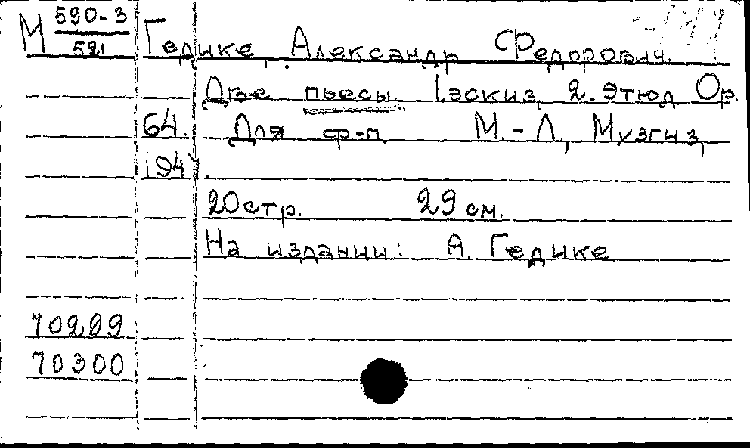 М 590-3/591 Гедике, Александр Федорович.
Две пьесы. 1. эскиз, 2. Этюд Ор.
64. Для ф-п. М.-Л., Музгиз,
1947.
20 стр. 29 см.
На издании: А. Гедике
70299
70300